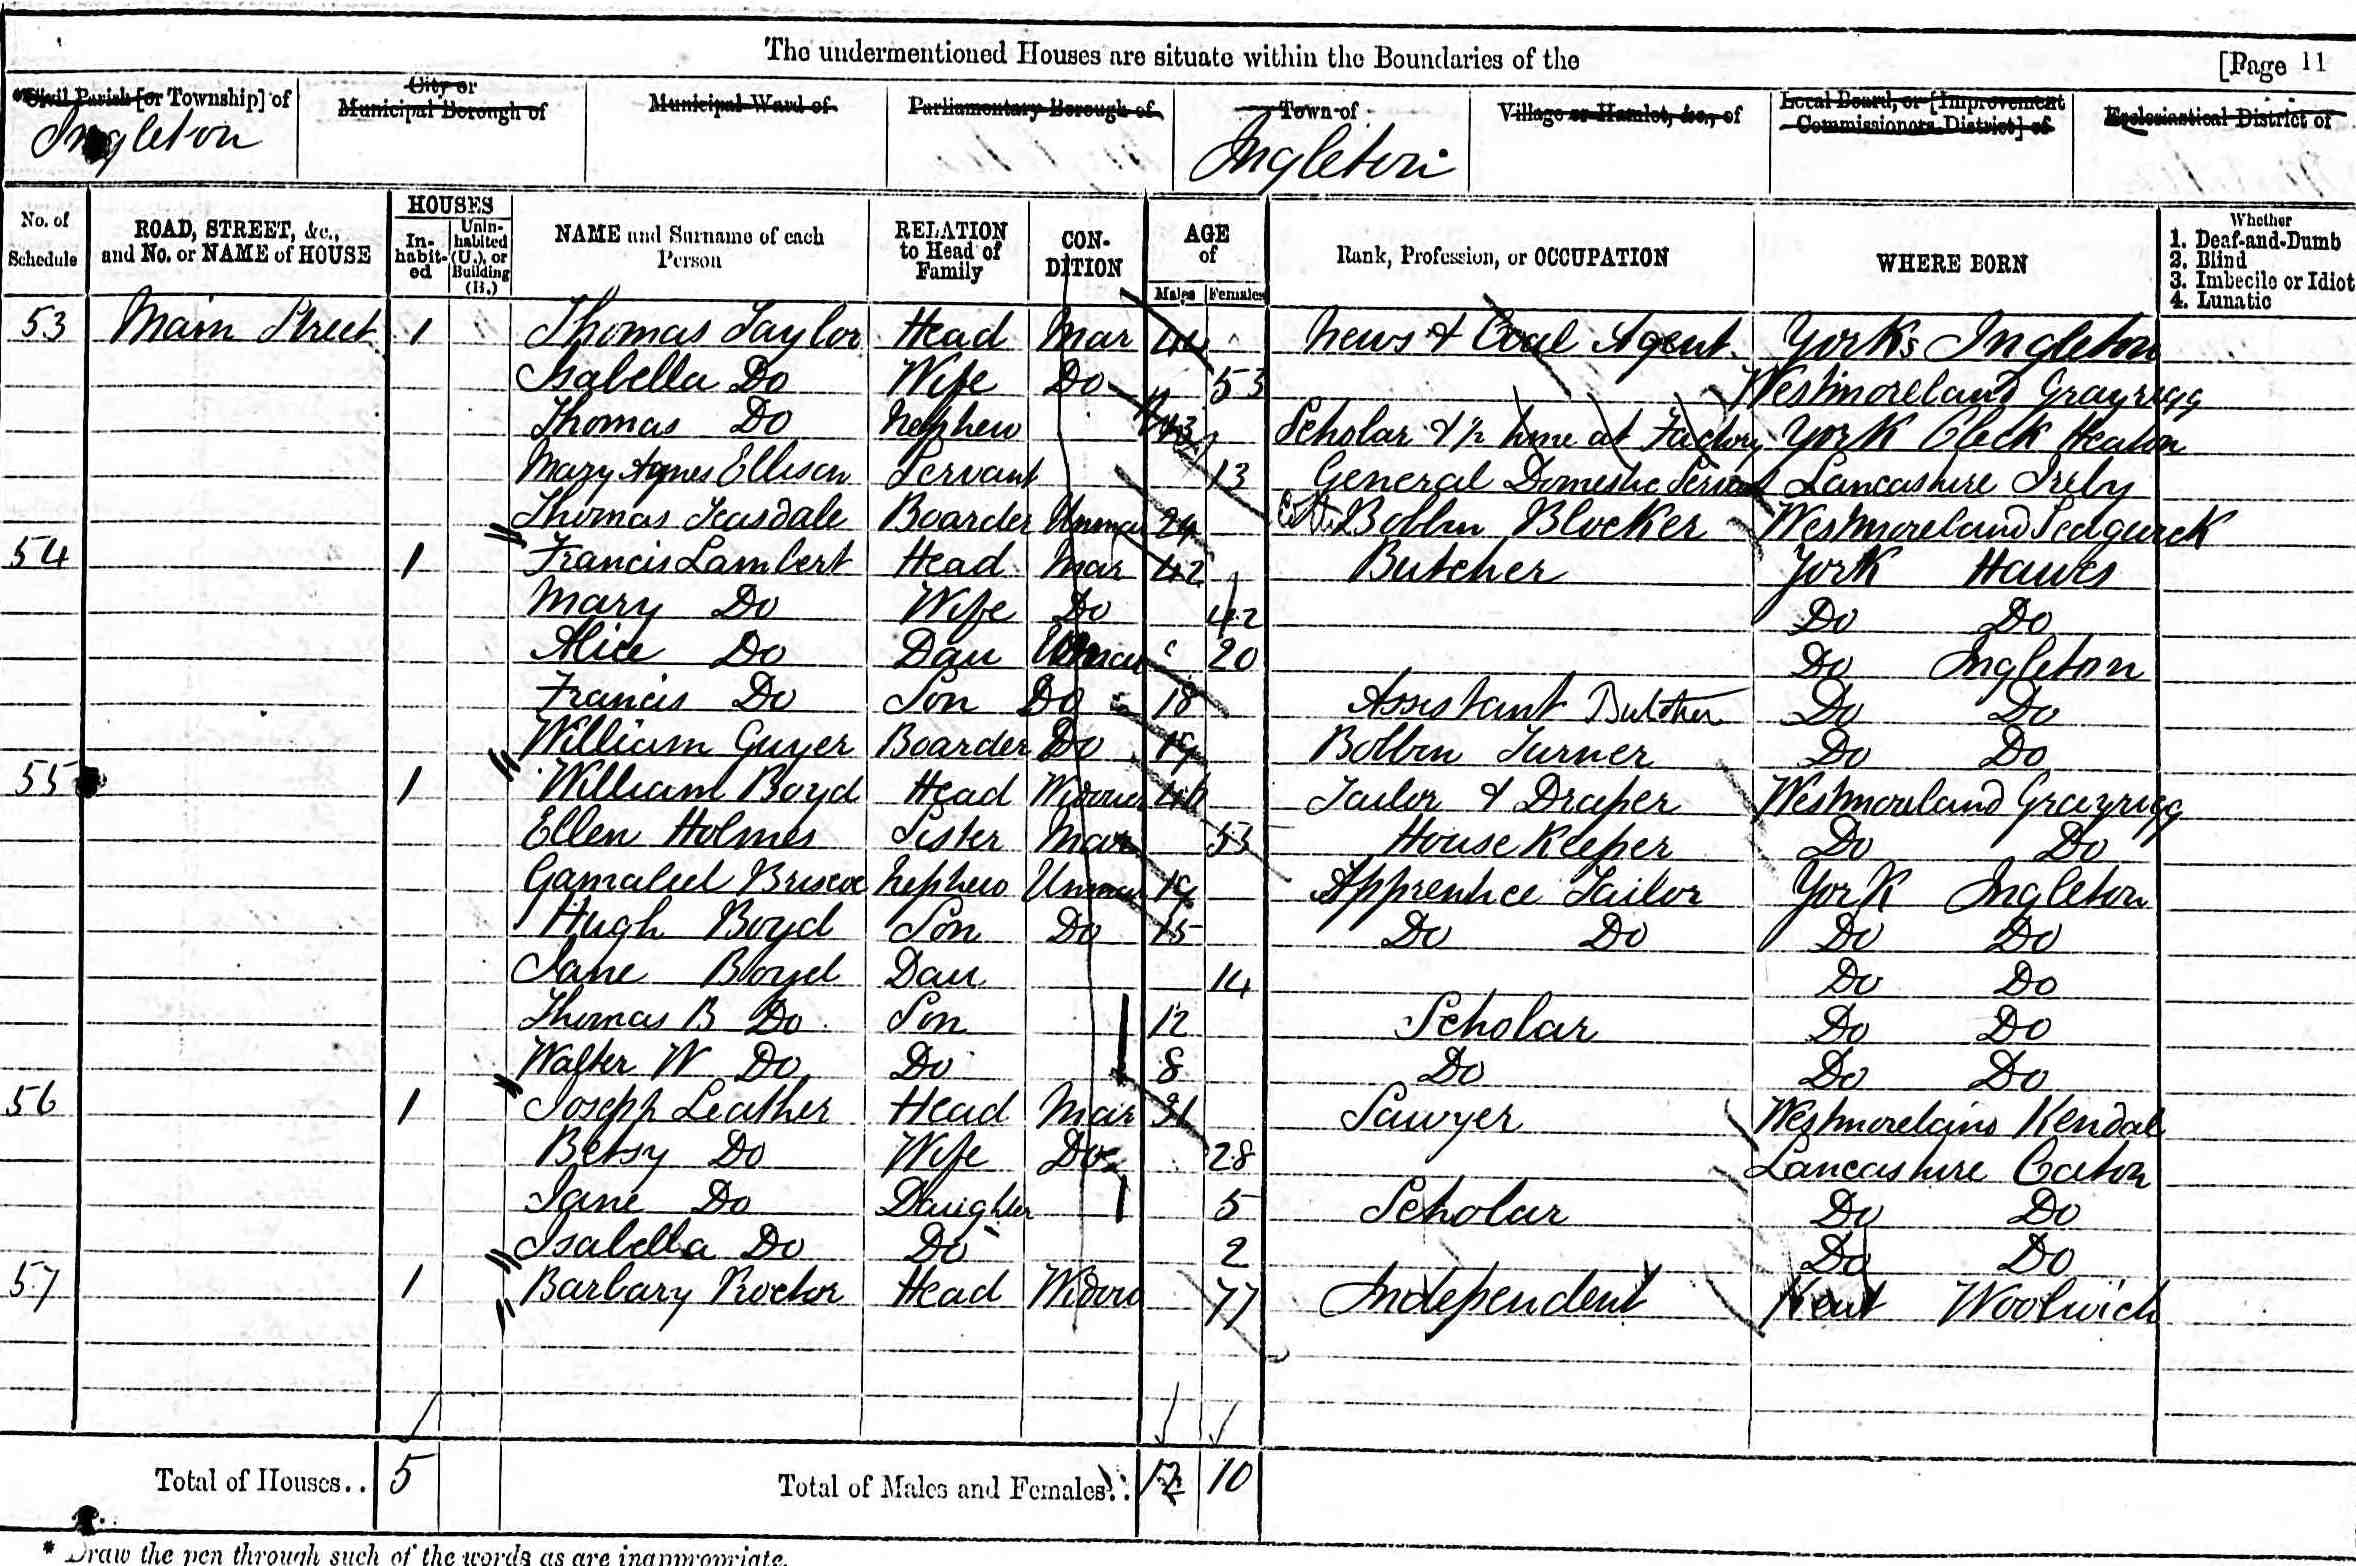 The undermentioned Houses are situate within the Boundaries of the
[Page 11
Civil Parish [or Township] of
City or Municipal Borough of
Municipal Ward of
Parliamentary Borough of
Town of
Village or Hamlet, &c., of
Local Board, or [Improvement Commissioners District] of
Ecclesiastical District of
Ingleton
Ingleton
No. of Schedule
ROAD, STREET, &c., and No. or NAME of HOUSE
HOUSES
In-habit-ed
Unin-habited (U.), or Building (B.)
NAME and Surname of each Person
RELATION to Head of Family
CON-DITION
AGE of
Males
Females
Rank, Profession, or OCCUPATION
WHERE BORN
Whether
1. Deaf-and-Dumb
2. Blind
3. Imbecile or Idiot
4. Lunatic
53 Main Street 1 Thomas Taylor Head Mar News & Coal Agent Yorks Ingleton
Isabella Do Wife Do 53 Westmoreland Grayrigg
Thomas Do Nephew 13 Scholar & ½ time at Factory York Cleck Heaton
Mary Agnes Ellison Servant 13 General Domestic Servant Lancashire Ireby
Thomas Teasdale Boarder Unmar 24 Bobbin Blocker Westmoreland Sedgwick
54 1 Francis Lambert Head Mar 42 Butcher York Hawes
Mary Do Wife Do 42 Do Do
Alice Do Dau Unmar 20 Do Ingleton
Francis Do Son Do 18 Assistant Butcher Do Do
William Guyer Boarder Do 19 Bobbin Turner Do Do
55 1 William Boyd Head Widower Tailor & Draper Westmoreland Grayrigg
Ellen Holmes Sister Mar 53 House Keeper Do Do
Gamaliel Briscoe Nephew Unmar 19 Apprentice Tailor York Ingleton
Hugh Boyd Son Do 15 Do Do Do Do
Jane Boyd Dau 14 Do Do
Thomas B Do Son 12 Scholar Do Do
Walter W Do Do 8 Do Do Do
56 1 Joseph Leather Head Mar 31 Sawyer Westmoreland Kendal
Betsy Do Wife Do 28 Lancashire Caton
Jane Do Daughter 5 Scholar Do Do
Isabella Do Do 2 Do Do
57 1 Barbary Proctor Head Widow 77 Independent Kent Woolwich
Total of Houses.. 5 Total of Males and Females.. 12 10
* Draw the pen through such of the words as are inappropriate.